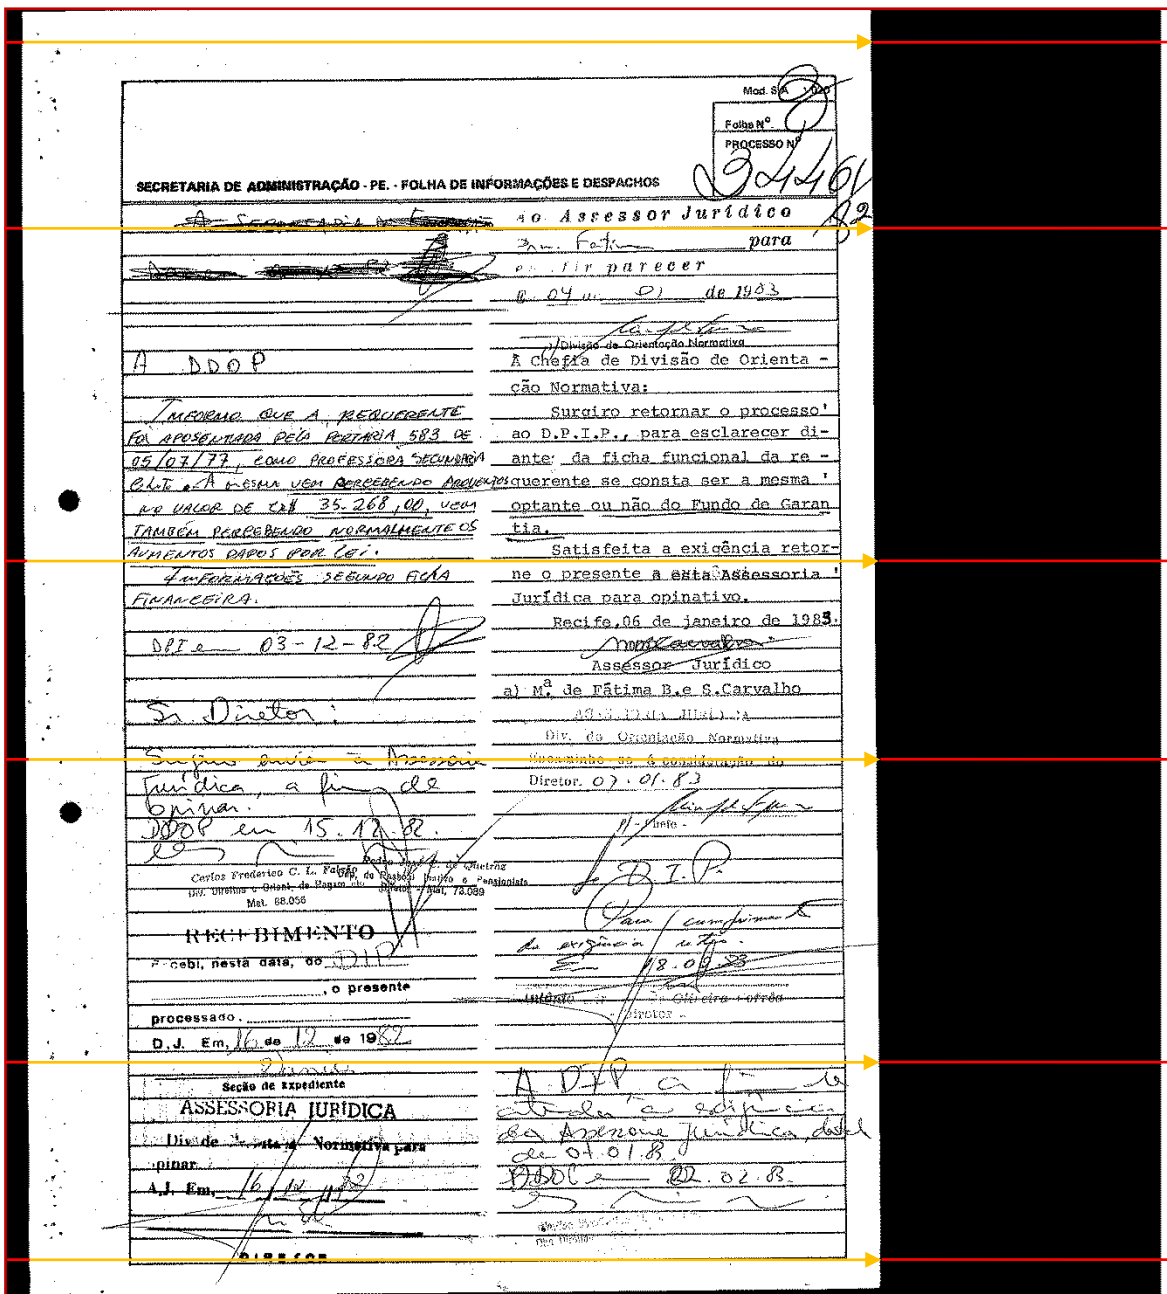 Mod. SA
Folha Nº
PROCESSO Nº
34461
82
SECRETARIA DE ADMINISTRAÇÃO - PE. - FOLHA DE INFORMAÇÕES E DESPACHOS
A DDOP
INFORMO QUE A REQUERENTE
FOI APOSENTADA PELA PORTARIA 583 DE
05/07/77, COMO PROFESSORA SECUNDÁRIA
A MESMA VEM PERCEBENDO PROVENTOS
NO VALOR DE CR$ 35.268,00, VEM
TAMBÉM PERCEBENDO NORMALMENTE OS
AUMENTOS DADOS POR LEI.
INFORMAÇÕES SEGUNDO FICHA
FINANCEIRA.
DPI em 03-12-82
Sr. Diretor:
Sugiro enviar à Assessoria
Jurídica, a fim de
opinar.
DDOP em 15.12.82.
Carlos Frederico C. L. Falcão
Mat. 68.056
Mat. 73.089
RECEBIMENTO
Recebi, nesta data, do DIP
, o presente
processado.
D.J. Em, 16 de 12 de 1982
Seção de Expediente
ASSESSORIA JURÍDICA
Div de Normativa para
opinar
A.J. Em, 16
DIRETOR
Ao Assessor Jurídico
para
emitir parecer
04 01 de 1983
Divisão de Orientação Normativa
À Chefia de Divisão de Orienta -
ção Normativa:
Surgiro retornar o processo'
ao D.P.I.P., para esclarecer di-
ante da ficha funcional da re -
querente se consta ser a mesma '
optante ou não do Fundo de Garan
tia.
Satisfeita a exigência retor-
ne o presente a esta Assessoria '
Jurídica para opinativo.
Recife,06 de janeiro de 1983.
Assessor Jurídico
a) Mª. de Fátima B.e S.Carvalho
Div. de Orientação Normativa
Encaminhe-se à consideração do
Diretor. 07.01.83
p/ - Chefe -
D.I.P.
Para cumprimento
da exigência retro.
Em 18.02.83
Oliveira Corrêa
- Diretor -
A DIP a fim de
atender a exigência
da Assessoria Jurídica, datada
de 07.01.83.
DDOP em 22.02.83.